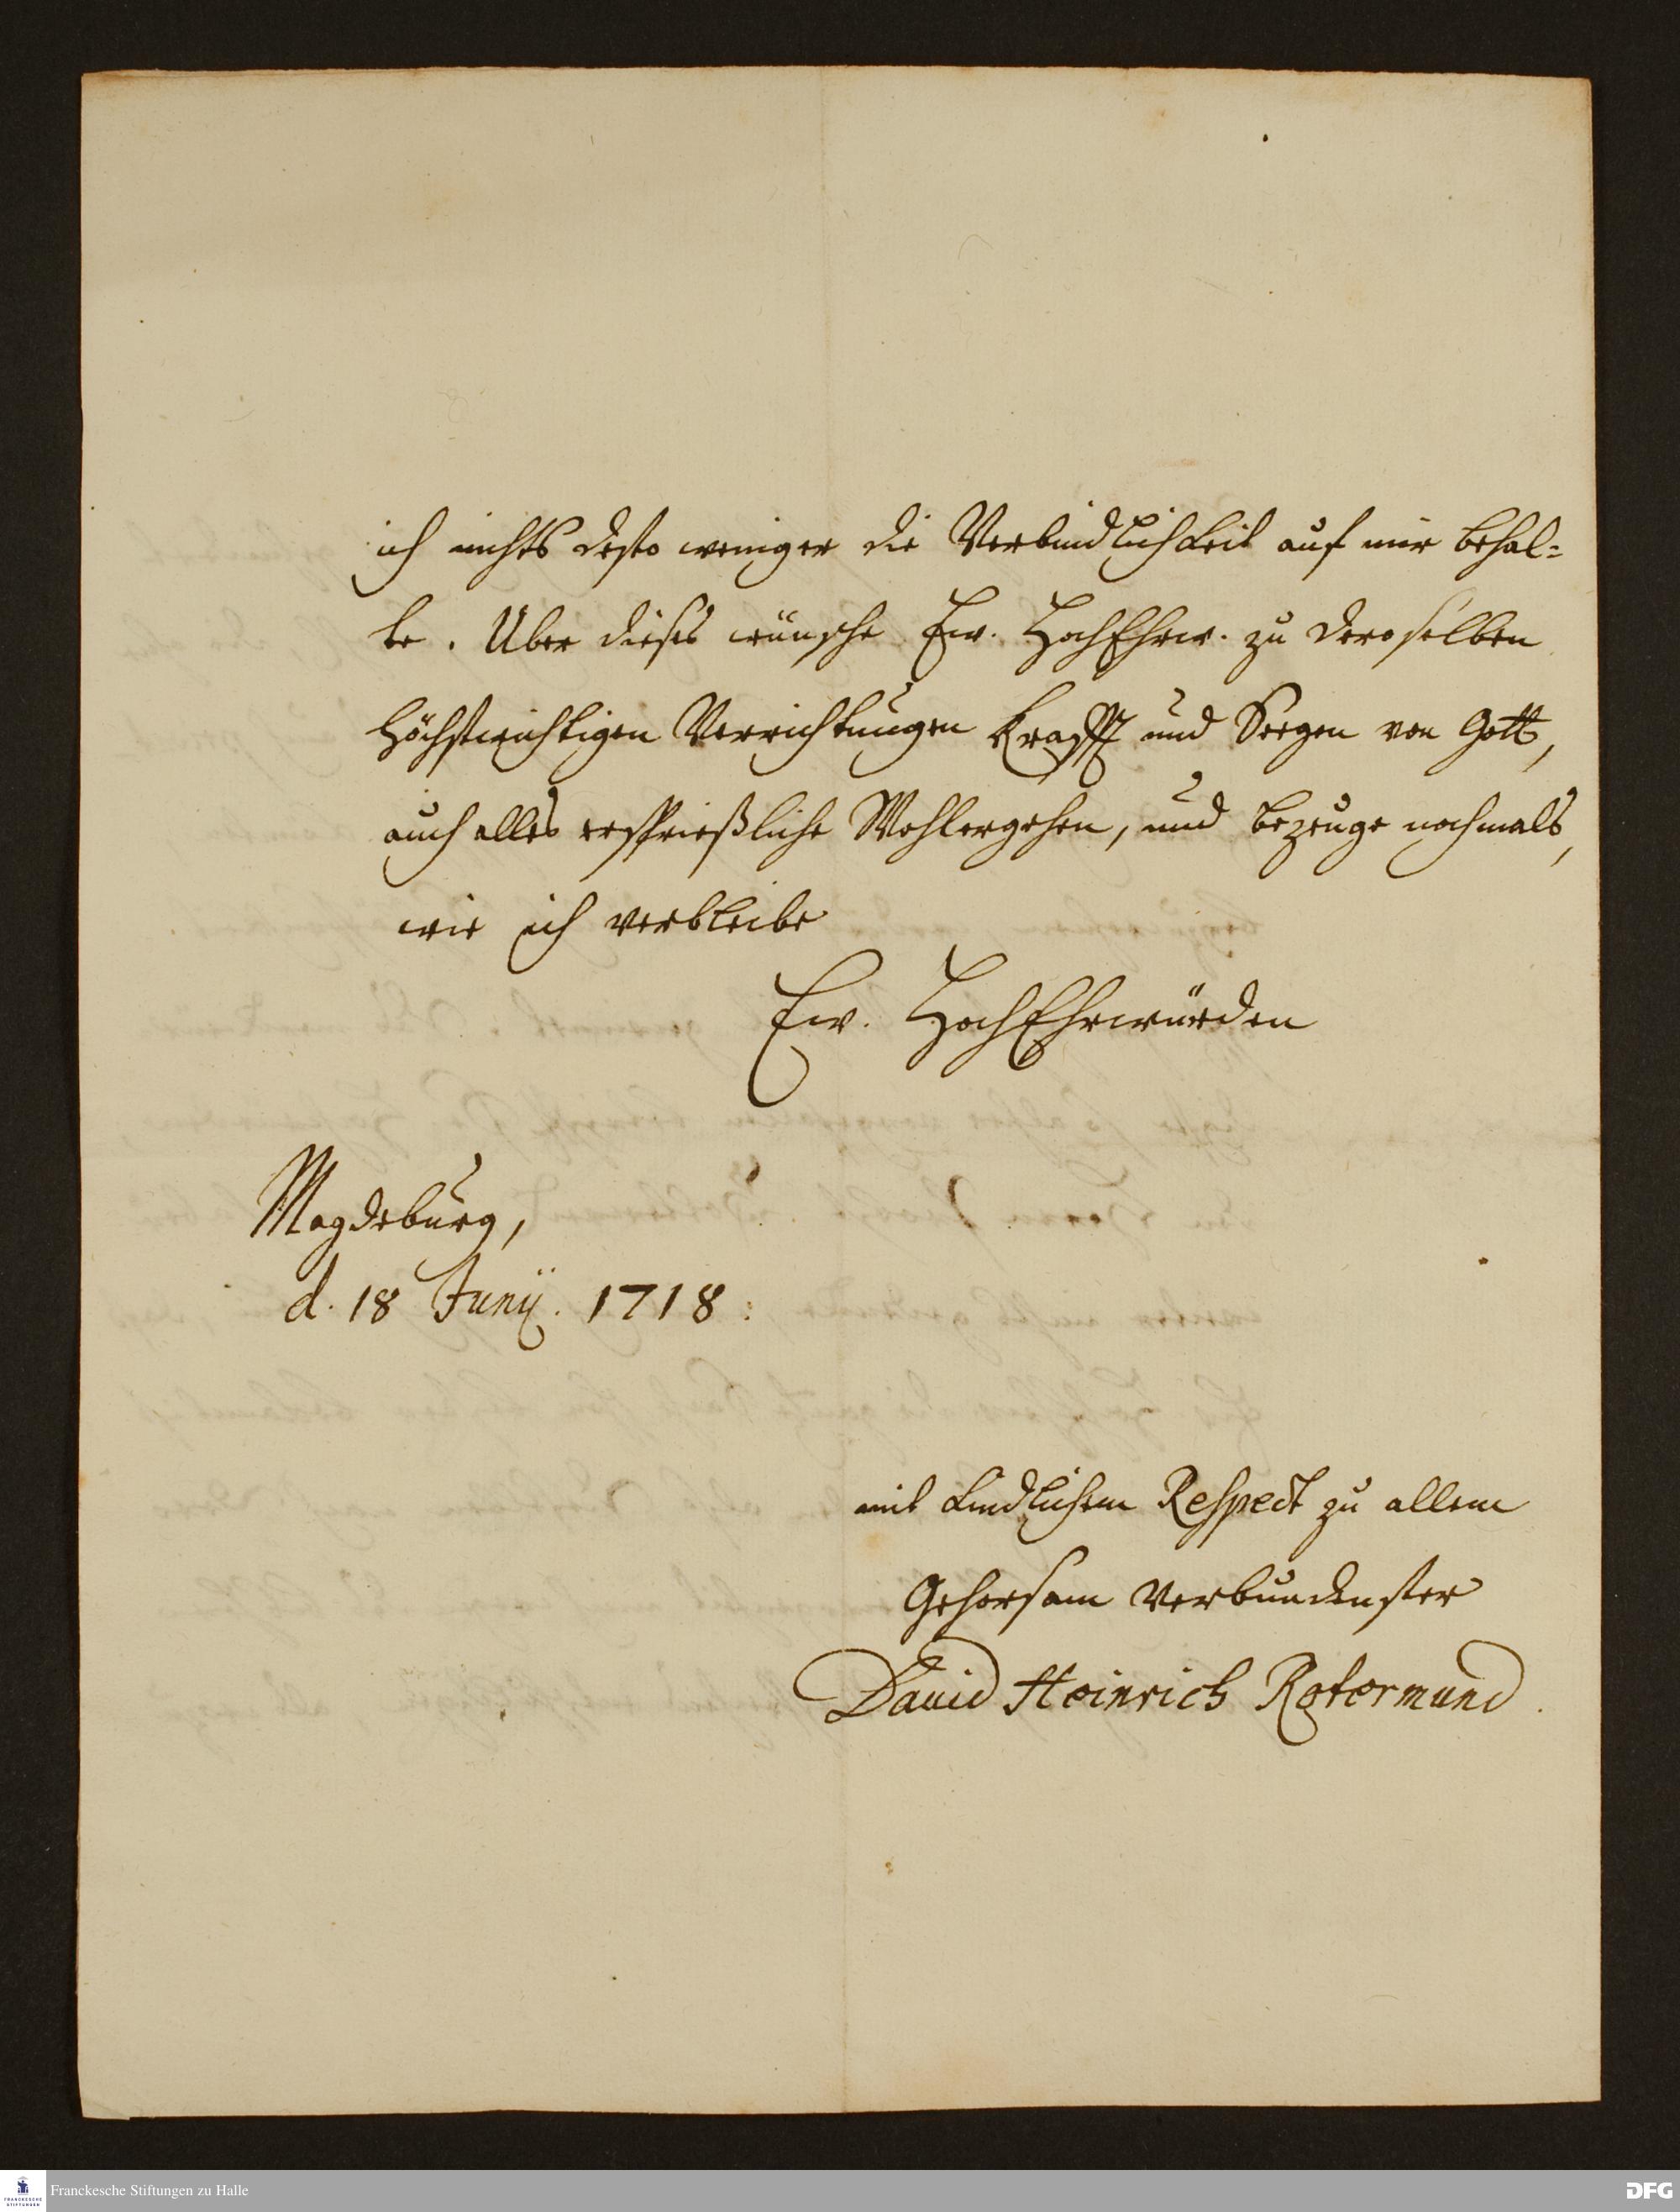 ich nichts desto weniger die Verbindlichkeit auf mir behal=
te. Über dieses wünsche Ew. HochEhrw. zu deroselben
höchstwichtigen Verrichtungen Krafft und Seegen von Gott,
auch alles ersprießliche Wohlergehen, und bezeuge nochmals,
wie ich verbleibe
Ew. HochEhrwürden
Magdeburg,
d. 18 Junij. 1718.
mit kindlichem Respect zu allem
Gehorsam verbundenster
David Heinrich Rotermund.
FRANCKESCHE STIFTUNGEN
Franckesche Stiftungen zu Halle
DFG